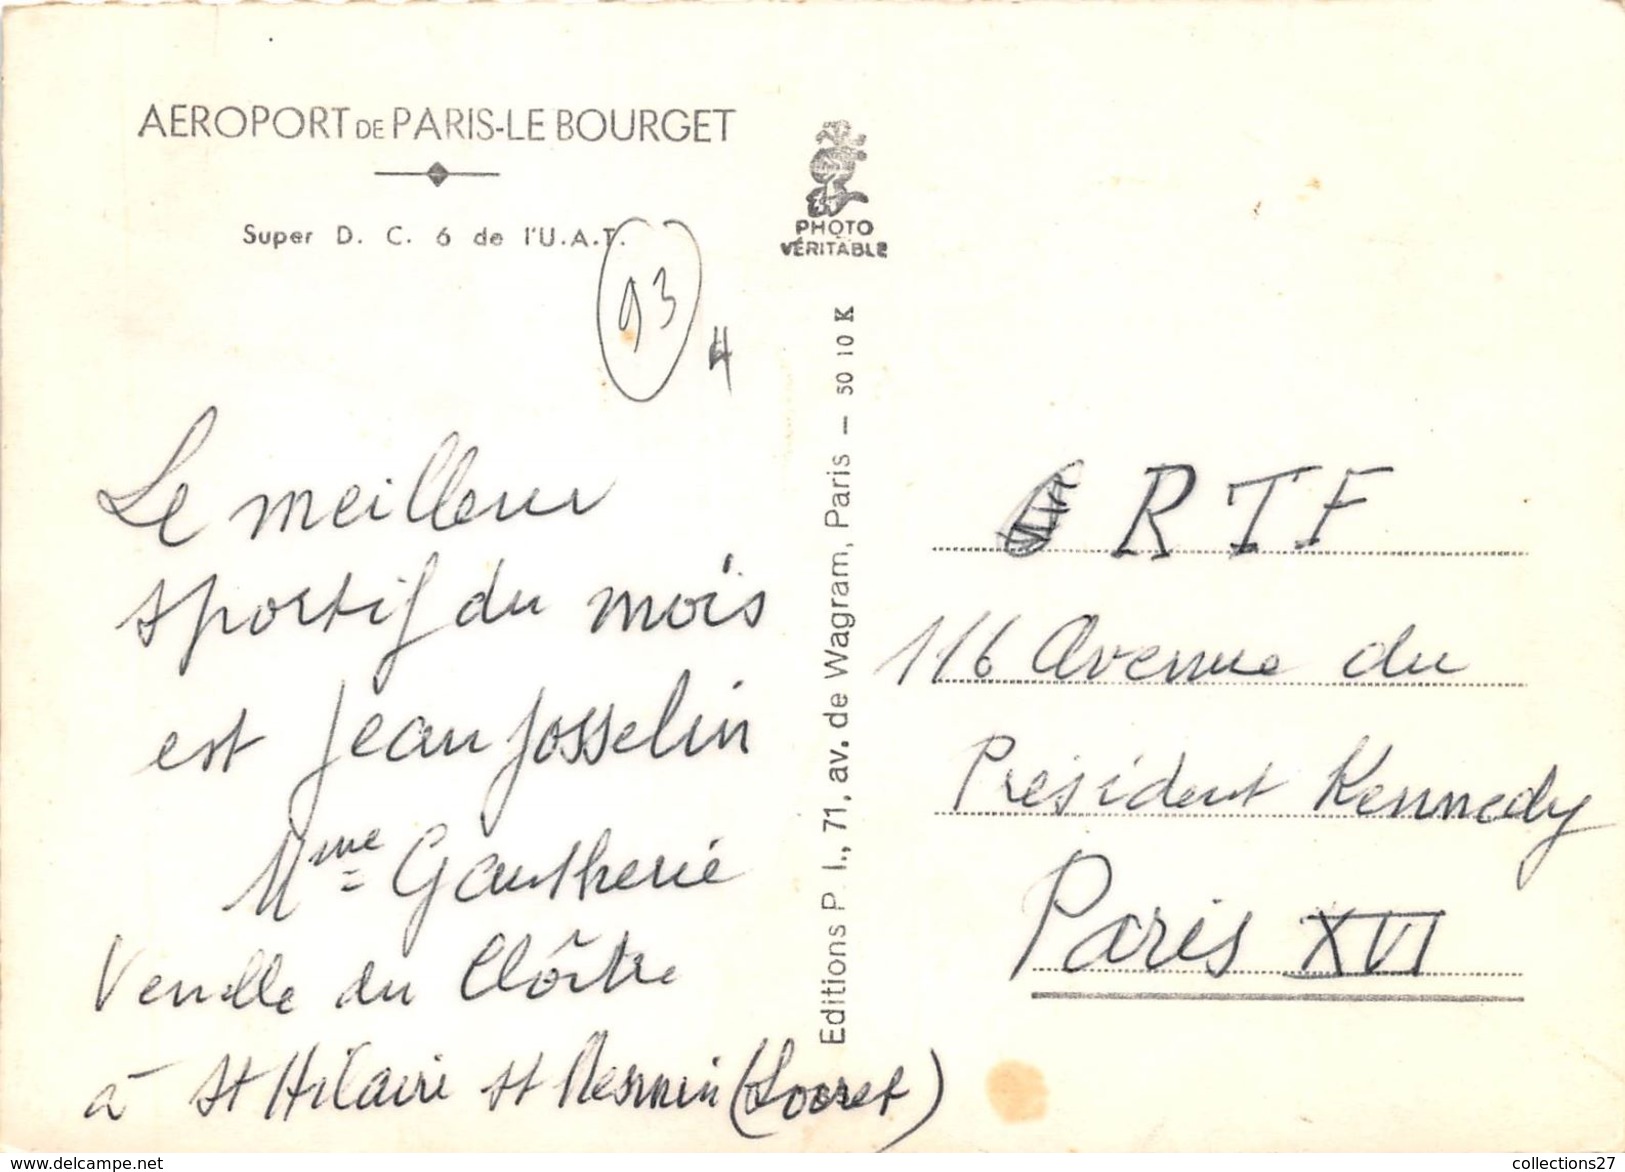 AEROPORT DE PARIS-LE BOURGET
Super D. C. 6 de l'U.A.T.
93
4
Le meilleur
sportif du mois
est Jean Josselin
Mme Gautherie
Venelle du Cloître
à St Hilaire St Mesmin (Loiret)
PHOTO
VÉRITABLE
Editions P. I., 71, av. de Wagram, Paris — 50 10 K
RTF
116 Avenue du
Président Kennedy
Paris XVI
collections27